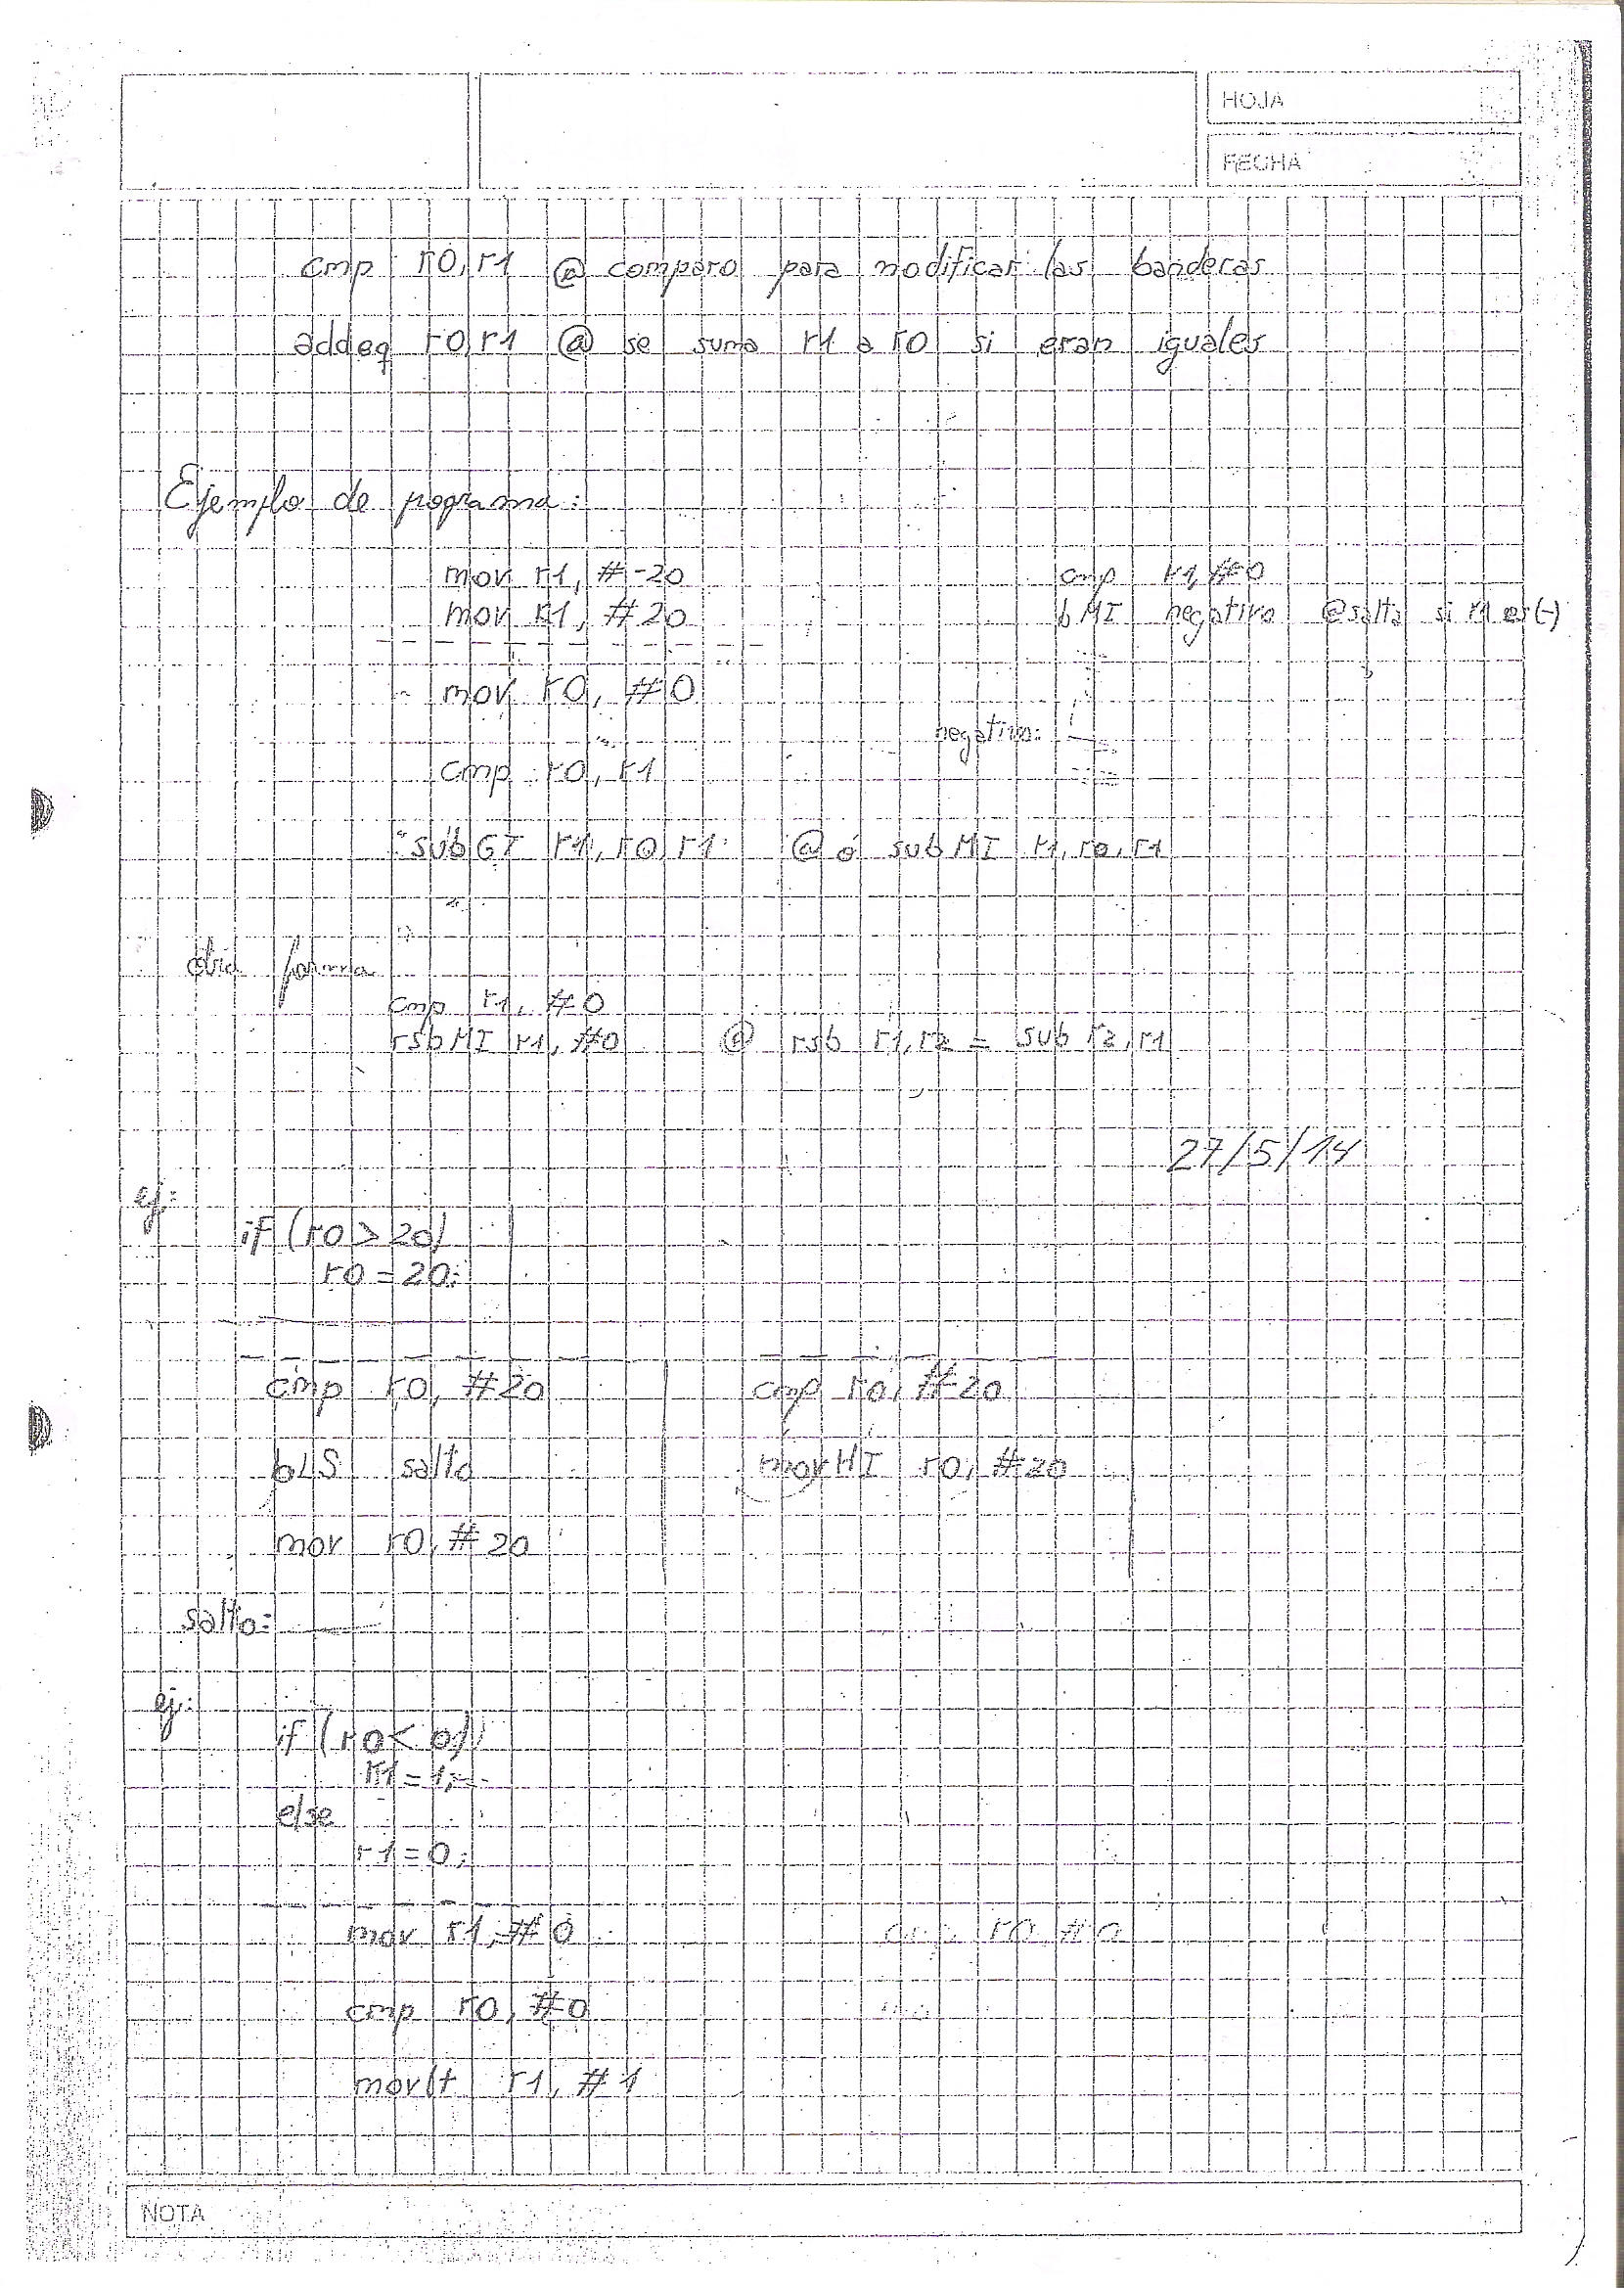 HOJA
FECHA
cmp r0, r1 @ comparo para modificar las banderas
addeq r0, r1 @ se suma r1 a r0 si eran iguales
Ejemplo de pograma:
mov r1, #-20
mov r1, #20
mov r0, #0
cmp r0, r1
subGT r1, r0, r1 @ ó subMI r1, r0, r1
cmp r1, #0
bMI negativo @salta si r1 es(-)
negativo:
otra forma
cmp r1, #0
rsbMI r1, #0 @ rsb r1, r2 = sub r2, r1
27/5/14
ej:
if (r0 > 20)
r0 = 20;
cmp r0, #20
bLS salto
mov r0, #20
salto:
cmp r0, #20
movHI r0, #20
ej:
if (r0 < 0)
r1 = 1;
else
r1 = 0;
mov r1, #0
cmp r0, #0
movlt r1, #1
r0 #0
NOTA